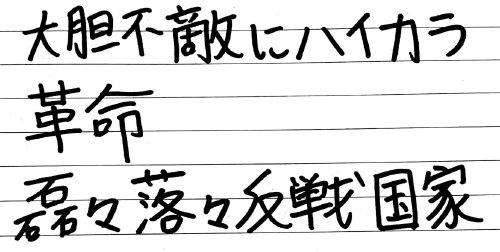 大胆不敵にハイカラ
革命
磊々落々反戦国家